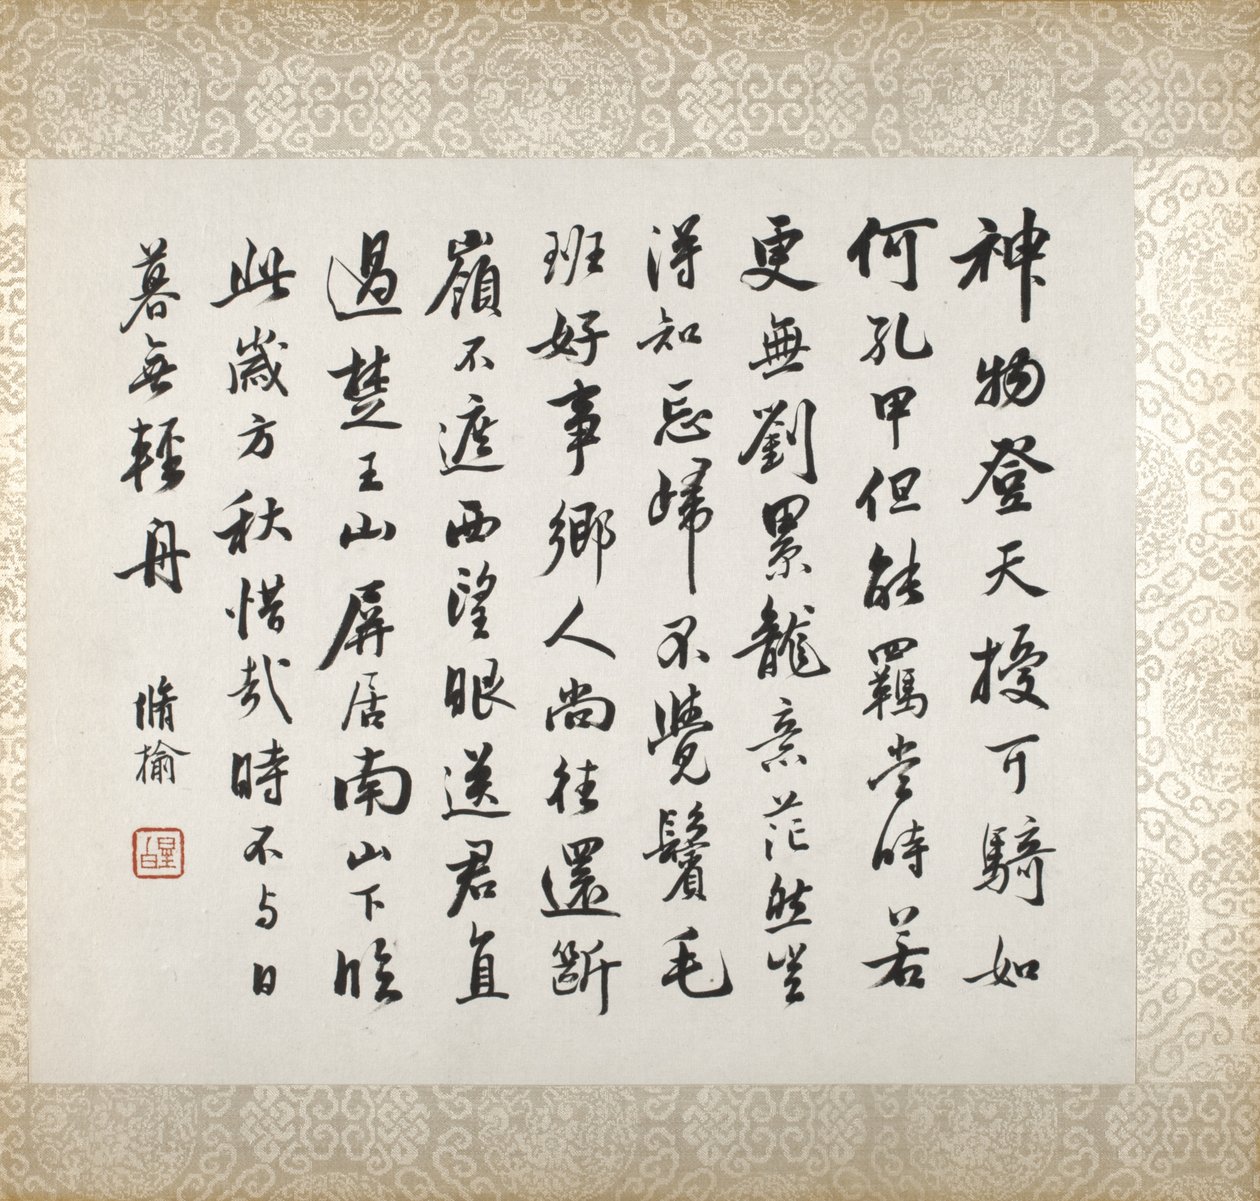 神物登天擾可騎如
何孔甲但能羈當時若
更無劉累龍意茫然豈
得知忘歸不覺鬢毛
班好事鄉人尚往還斷
嶺不遮西望眼送君直
過楚王山屏居南山下臨
此歲方秋惜哉時不与日
暮無輕舟 脩榆